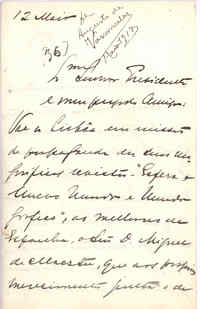 12 Maio
de
Augusto de
Vasconcelos
Maio 1913
Senhor Presidente
e meu prezado Amigo:
Vae a Lisboa em missão
de propaganda das duas
revistas "Esfera e
Nuevo Mundo e Mundo
Grafico", as melhores de
Espanha, o Snr D. Miguel
de Maeztu, que aos proprios
merecimentos junta o de